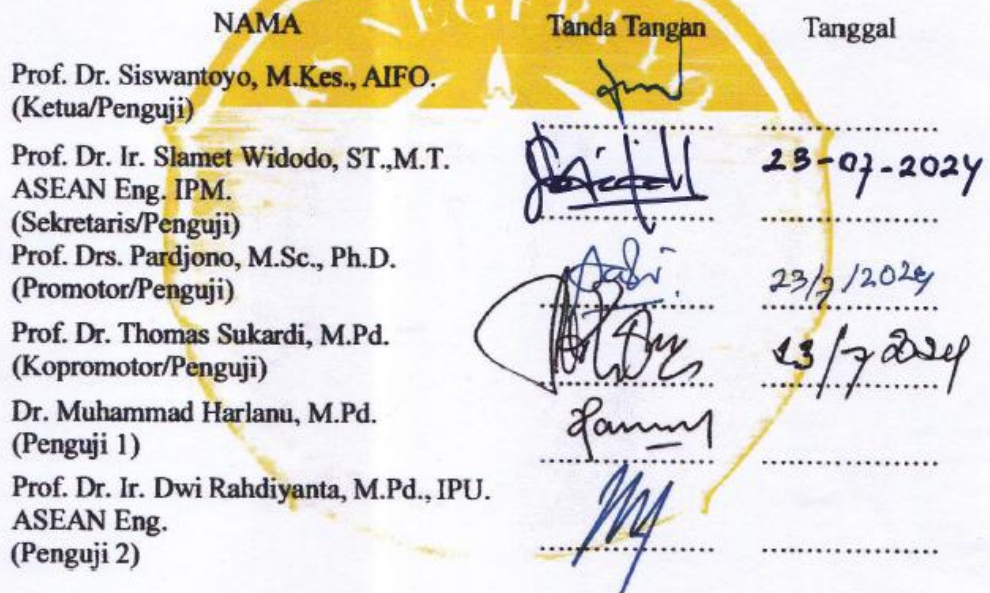 NAMA Tanda Tangan Tanggal
Prof. Dr. Siswantoyo, M.Kes., AIFO.
(Ketua/Penguji)
Prof. Dr. Ir. Slamet Widodo, ST.,M.T. 23-07-2024
ASEAN Eng. IPM.
(Sekretaris/Penguji)
Prof. Drs. Pardjono, M.Sc., Ph.D.
(Promotor/Penguji) 23/7/2024
Prof. Dr. Thomas Sukardi, M.Pd.
(Kopromotor/Penguji) 23/7 2024
Dr. Muhammad Harlanu, M.Pd.
(Penguji 1)
Prof. Dr. Ir. Dwi Rahdiyanta, M.Pd., IPU.
ASEAN Eng.
(Penguji 2)